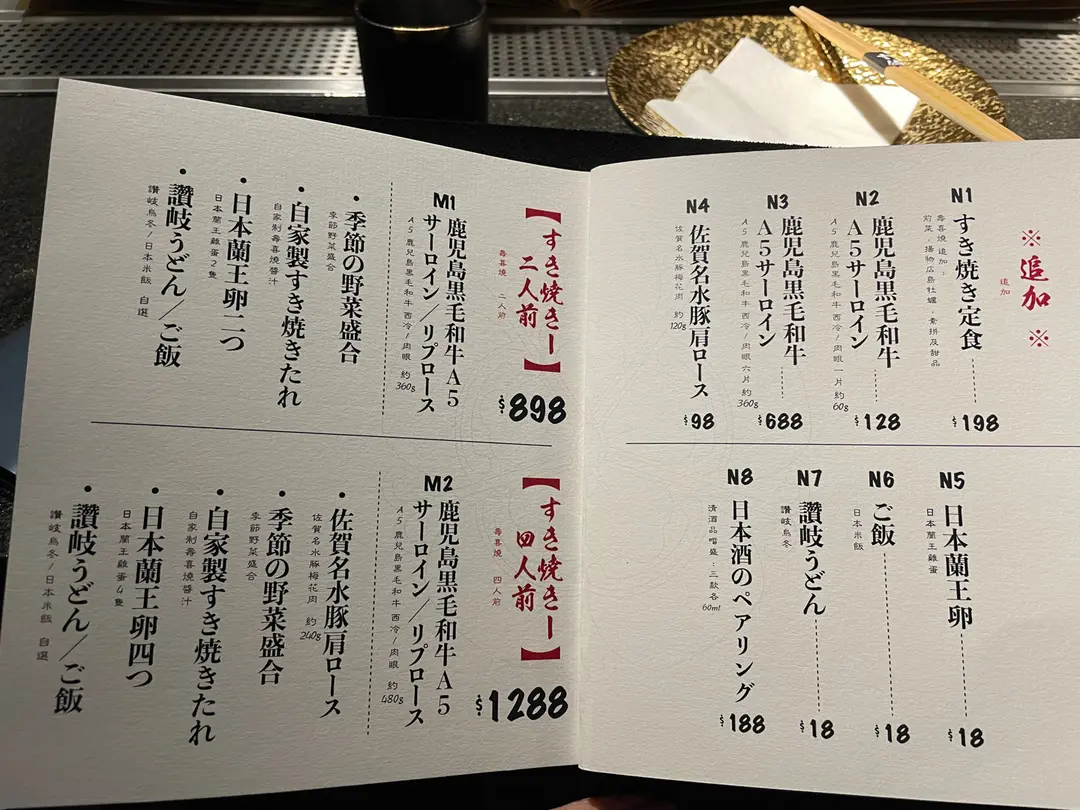 ※追加※
追加
N1
すき焼き定食
壽喜燒追加：
前菜、揚物広島牡蠣、素拼及甜品
$198
N2
鹿児島黒毛和牛
A5サーロイン
A5鹿兒島黑毛和牛西冷/肉眼一片 約60g
$128
N3
鹿児島黒毛和牛
A5サーロイン
A5鹿兒島黑毛和牛西冷/肉眼六片 約360g
$688
N4
佐賀名水豚肩ロース
佐賀名水豚梅花肉 約120g
$98
N5
日本蘭王卵
日本蘭王雞蛋
$18
N6
ご飯
日本米飯
$18
N7
讃岐うどん
讃岐烏冬
$18
N8
日本酒のペアリング
清酒品嚐盛：三款各60ml
$188
【すき焼きー
二人前】
壽喜燒 二人前
$898
M1
鹿児島黒毛和牛A5
サーロイン／リブロース
A5鹿兒島黑毛和牛西冷/肉眼 約360g
・季節の野菜盛合
季節野菜盛合
・自家製すき焼きたれ
自家制壽喜燒醬汁
・日本蘭王卵二つ
日本蘭王雞蛋2隻
・讃岐うどん／ご飯
讃岐烏冬/日本米飯 自選
【すき焼きー
四人前】
壽喜燒 四人前
$1288
M2
鹿児島黒毛和牛A5
サーロイン／リブロース
A5鹿兒島黑毛和牛西冷/肉眼 約480g
・佐賀名水豚肩ロース
佐賀名水豚梅花肉 約240g
・季節の野菜盛合
季節野菜盛合
・自家製すき焼きたれ
自家制壽喜燒醬汁
・日本蘭王卵四つ
日本蘭王雞蛋4隻
・讃岐うどん／ご飯
讃岐烏冬/日本米飯 自選